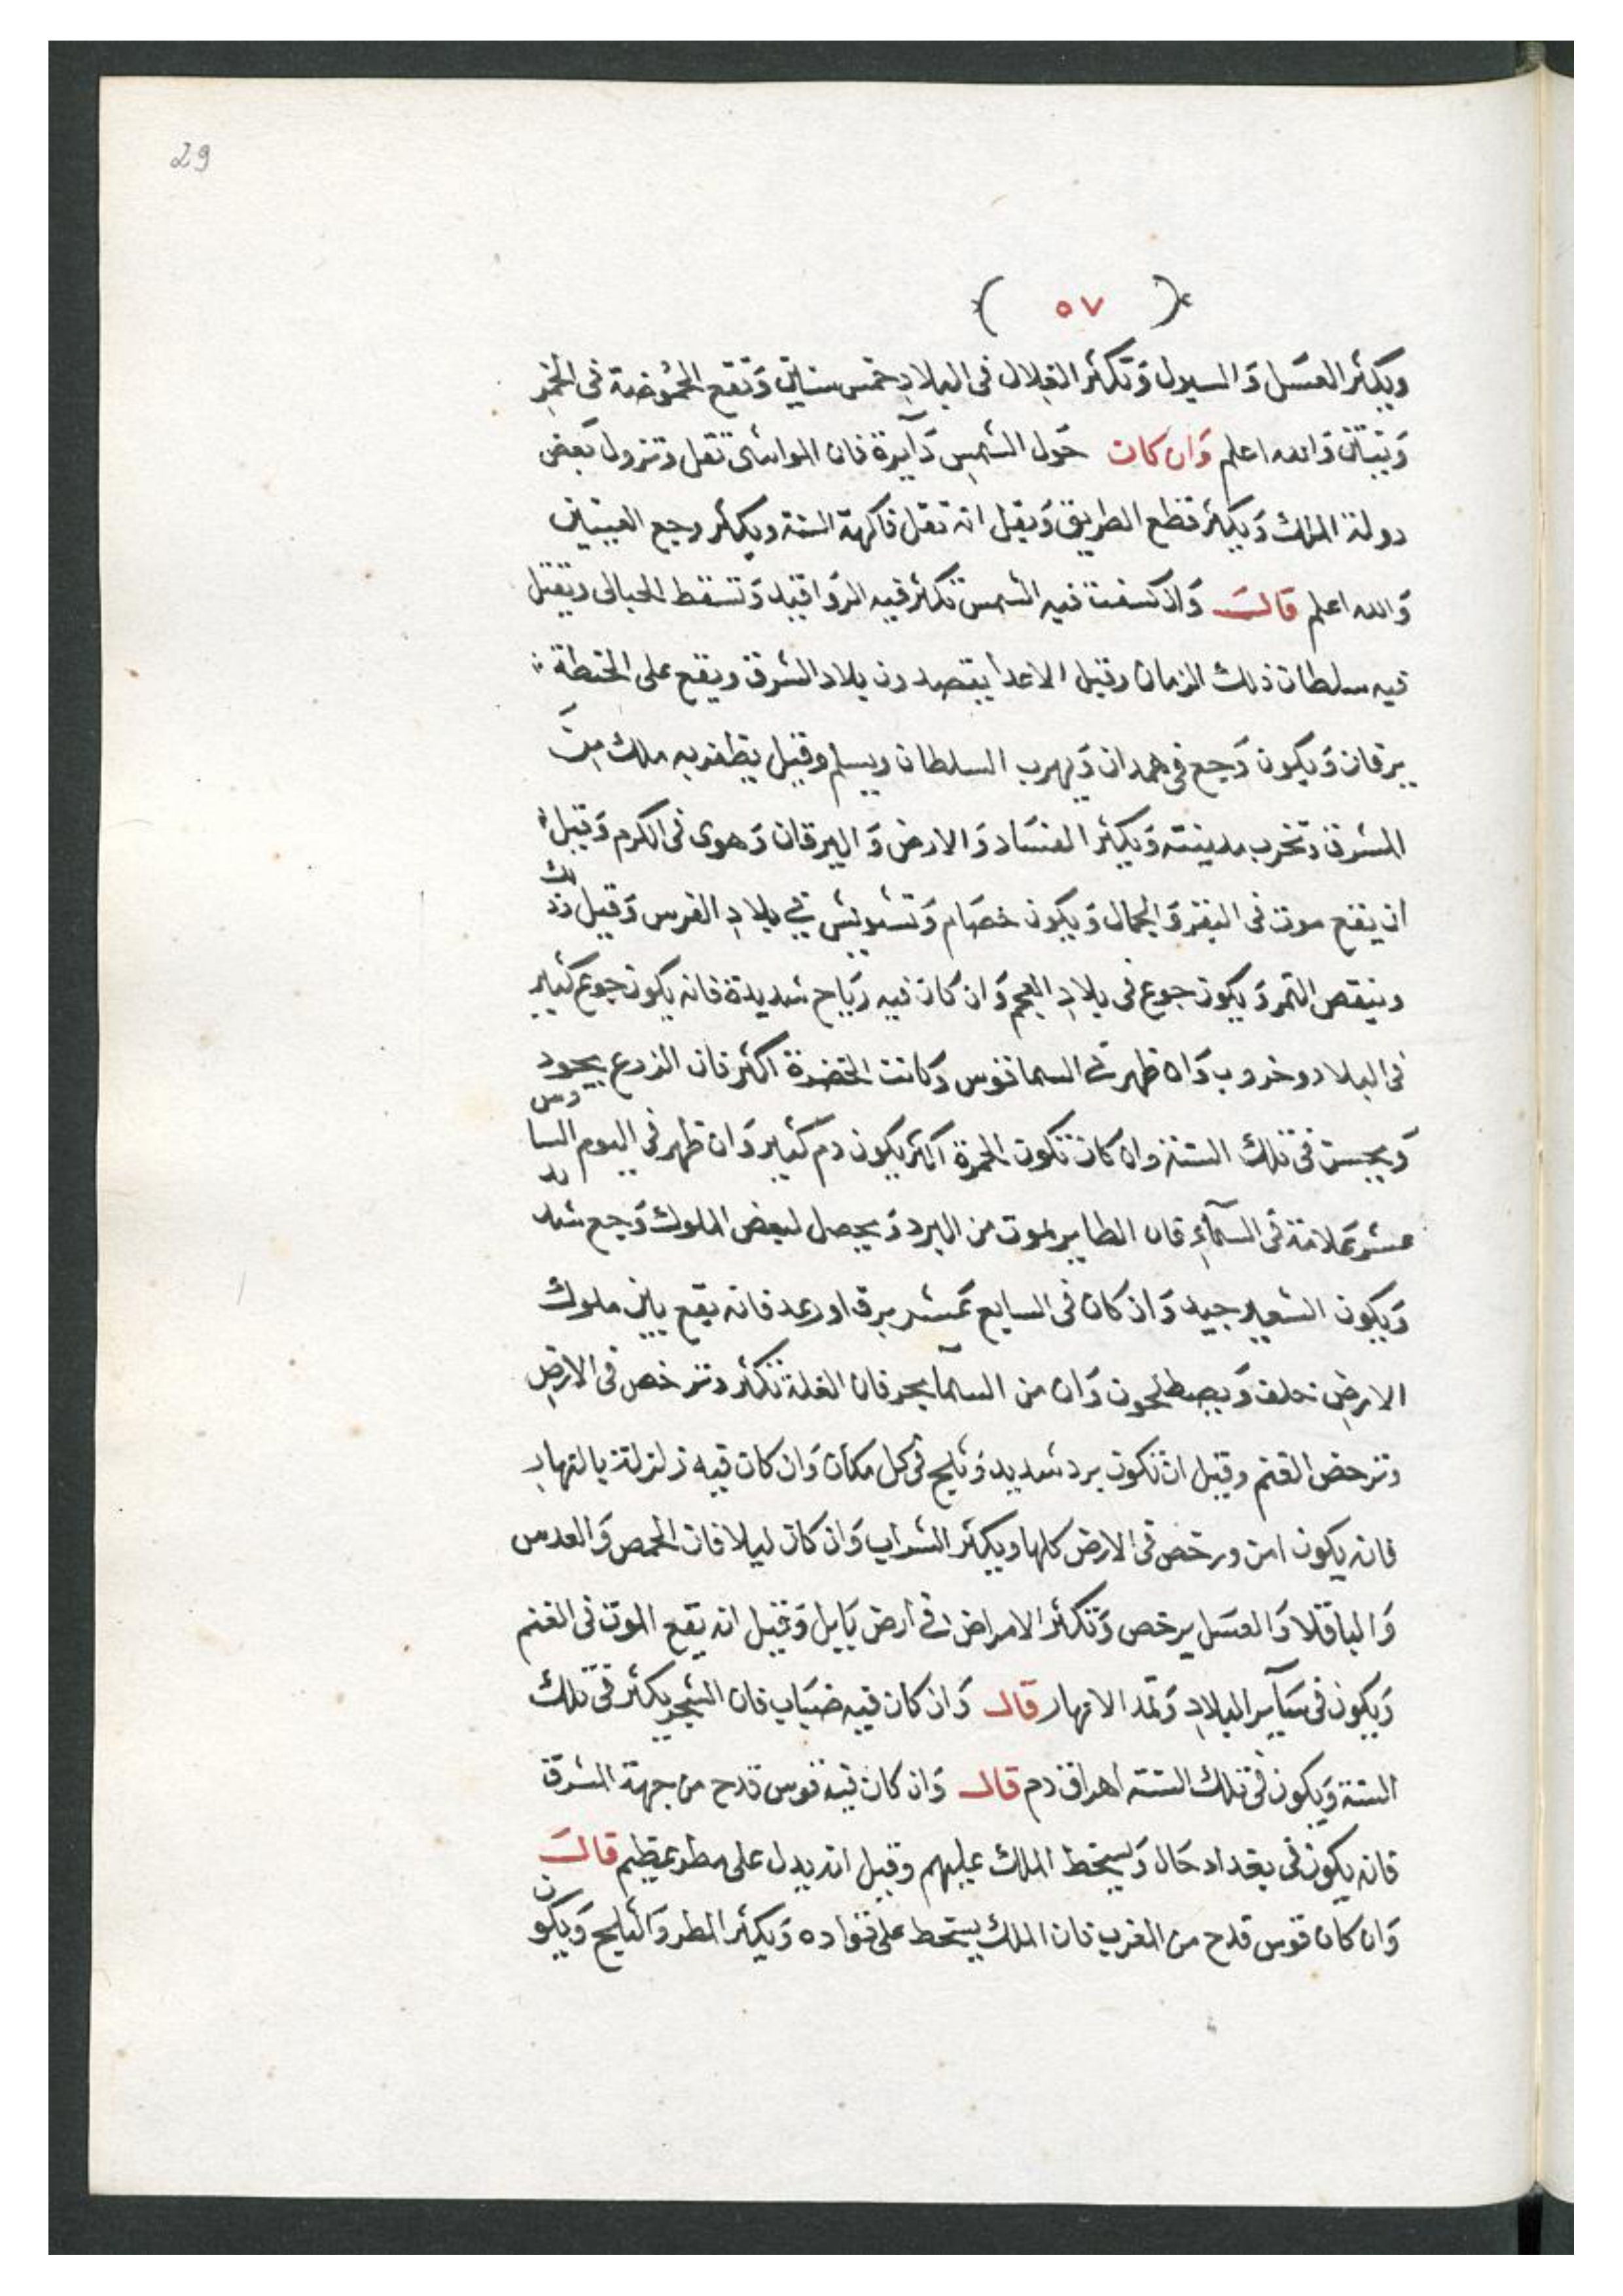 29
( ٥٧ )
ويكثر العسَل وَالسيول وَتكثر الغلال فى البلادِ خمس سناين وَتقع الحمُوضة فى الخمر
وَالله اعلم وَان كان حَول الشمسِ دَآيرة فان المواشى تقل وتزول بَعض
دولة الملك وَيكثر قطع الطريق وَيقل انه تقل فاكهة السنة ويكثر وجع العينين
وَالله اعلم قالَ وَاذ كسفت فيه الشمس تكثر فيه وَتسقط الحبالى ويقتل
فيه سلطان ذلك الزمان وقيل الاعدا يقصدون بلاد الشرق ويقع على الحنطة
يرقان وَيكون وَجع فى همدان وَيهرب السلطان ويسلم وقيل يظفر به ملك مِنَ
المشرق وتخرب مدينته وَيكثر الفسَاد وَالارض وَاليرقان وَهوى فى الكرم وَقيل
ان يقع موت فى البقر وَالجمال وَيكون خصَام وَتشويش فى بلادِ الفرس وَقيل ذلك
وينقص التمر وَيكون جوع فى بلادِ العجم وَان كان فيه رَياح شديدة فانه يكون جوع كثير
فى البلاد وخروب وَان ظهر فى السما قوس وَكانت الخضرة اكثر فان الزرع يجود
وَيحسن فى تلك السنة وان كان تكون الحمرة اكثر يكون دم كثير وَان ظهر فى اليوم السادس
عشر عَلامة فى السمآءِ فان الطاير يموت من البرد وَيحصل لبعض الملوك وَجع شديد
وَيكون الشعير جيد وَان كان فى السابع عَشر برق او رعد فانه يقع باين ملوك
الارضِ خلف وَيصطلحون وَان من السمآ يجر فان الغلة تكثر وترخص فى الارضِ
وترخص الغنم وقيل ان تكون برد شديد وَثلج فى كل مكان وَان كان فيه زلزلة بالنهار
فانه يكون امن ورخص فى الارض كلها ويكثر الشراب وَان كان ليلا فان الحمص وَالعدس
وَالباقلا وَالعسَل يرخص وَتكثر الامراض فى ارض بَابل وَقيل انه يقع الموت فى الغنم
وَيكون فى سَآير البلادِ وَتمد الانهار قال وَان كان فيه ضبَاب فان الشجر يكثر فى تلك
السنة وَيكون فى تلك السنة اهراق دم قال وَان كان فيه قوس قدح من جهة الشرق
فانه يكون فى بغداد حَال وَيسخط الملك عليهم وقيل انه يدل على مطر عَظيم قالَ
وَان كان قوس قدح من المغرب فان الملك يسخط على قواده وَيكثر المطر وَالثلج وَيكون